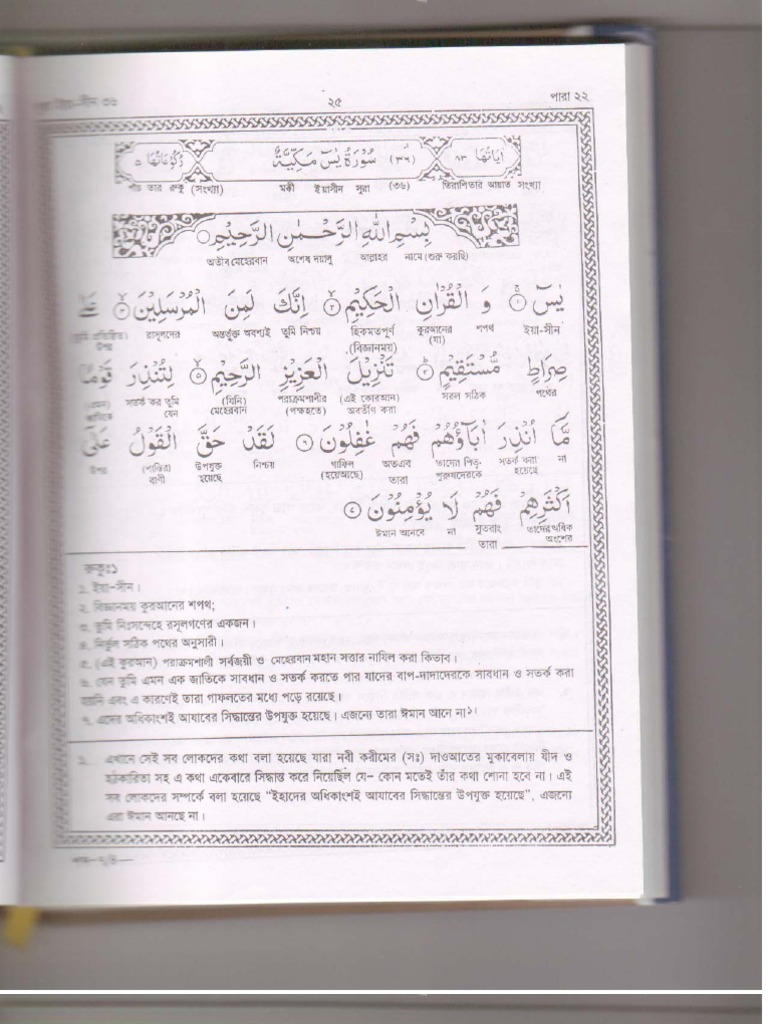 ইয়া-সীন ৩৬ ২৫ পারা ২২
اٰیَاتُهَا ٨٣ (٣٦) سُوْرَةُ یٰسٓ مَكِّیَّةٌ رُكُوْعَاتُهَا ٥
পাঁচ তার রুকু (সংখ্যা) মক্কী ইয়াসীন সূরা (৩৬) তিরাশিতার আয়াত সংখ্যা
بِسْمِ اللهِ الرَّحْمٰنِ الرَّحِیْمِ
অতীব মেহেরবান অশেষ দয়ালু আল্লাহর নামে (শুরু করছি)
یٰسٓ ۝١ وَ الْقُرْاٰنِ الْحَكِیْمِ ۝٢ اِنَّكَ لَمِنَ الْمُرْسَلِیْنَ ۝٣ عَلٰی
(তুমি প্রতিষ্ঠিত) রাসূলদের অন্তর্ভুক্ত অবশ্যই তুমি নিশ্চয় হিকমতপূর্ণ কুরআনের শপথ ইয়া-সীন
উপর (বিজ্ঞানময়) (যা)
صِرَاطٍ مُّسْتَقِیْمٍ ۝٤ تَنْزِیْلَ الْعَزِیْزِ الرَّحِیْمِ ۝٥ لِتُنْذِرَ قَوْمًا
(এমন) সতর্ক কর তুমি (যিনি) পরাক্রমশালীর (এই কোরআন) সরল সঠিক পথের
জাতিকে যেন মেহেরবান (পক্ষহতে) অবতীর্ণ করা
مَّاۤ اُنْذِرَ اٰبَآؤُهُمْ فَهُمْ غٰفِلُوْنَ ۝٦ لَقَدْ حَقَّ الْقَوْلُ عَلٰۤی
উপর (শাস্তির) উপযুক্ত নিশ্চয় গাফিল অতএব তাদের পিতৃ- সতর্ক করা না
বাণী হয়েছে (হয়েআছে) তারা পুরুষদেরকে হয়েছে
اَكْثَرِهِمْ فَهُمْ لَا یُؤْمِنُوْنَ ۝٧
ঈমান আনবে না সুতরাং তাদের অধিক
তারা অংশের
রুকুঃ১
১. ইয়া-সীন।
২. বিজ্ঞানময় কুরআনের শপথ;
৩. তুমি নিঃসন্দেহে রসূলগণের একজন।
৪. নির্ভুল সঠিক পথের অনুসারী।
৫. (এই কুরআন) পরাক্রমশালী সর্বজয়ী ও মেহেরবান মহান সত্তার নাযিল করা কিতাব।
৬. যেন তুমি এমন এক জাতিকে সাবধান ও সতর্ক করতে পার যাদের বাপ-দাদাদেরকে সাবধান ও সতর্ক করা
হয়নি এবং এ কারণেই তারা গাফলতের মধ্যে পড়ে রয়েছে।
৭. এদের অধিকাংশই আযাবের সিদ্ধান্তের উপযুক্ত হয়েছে। এজন্যে তারা ঈমান আনে না১।
১. এখানে সেই সব লোকদের কথা বলা হয়েছে যারা নবী করীমের (সঃ) দাওআতের মুকাবেলায় যীদ ও
হঠকারিতা সহ এ কথা একেবারে সিদ্ধান্ত করে নিয়েছিল যে- কোন মতেই তাঁর কথা শোনা হবে না। এই
সব লোকদের সম্পর্কে বলা হয়েছে "ইহাদের অধিকাংশই আযাবের সিদ্ধান্তের উপযুক্ত হয়েছে", এজন্যে
এরা ঈমান আনছে না।